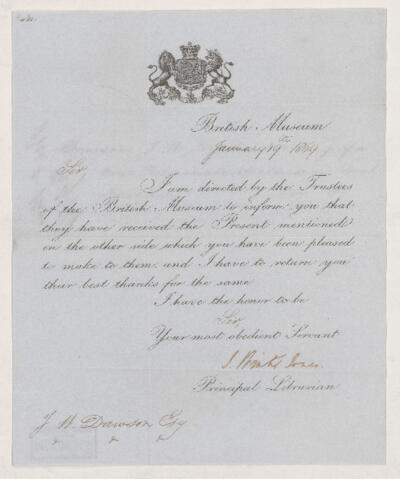 British Museum
January 19th 1869
Sir
I am directed by the Trustees
of the British Museum to inform you that
they have received the Present mentioned
on the other side which you have been pleased
to make to them, and I have to return you
their best thanks for the same
I have the honor to be
Sir
Your most obedient Servant
J. Winter Jones.
Principal Librarian
J W Dawson Esq